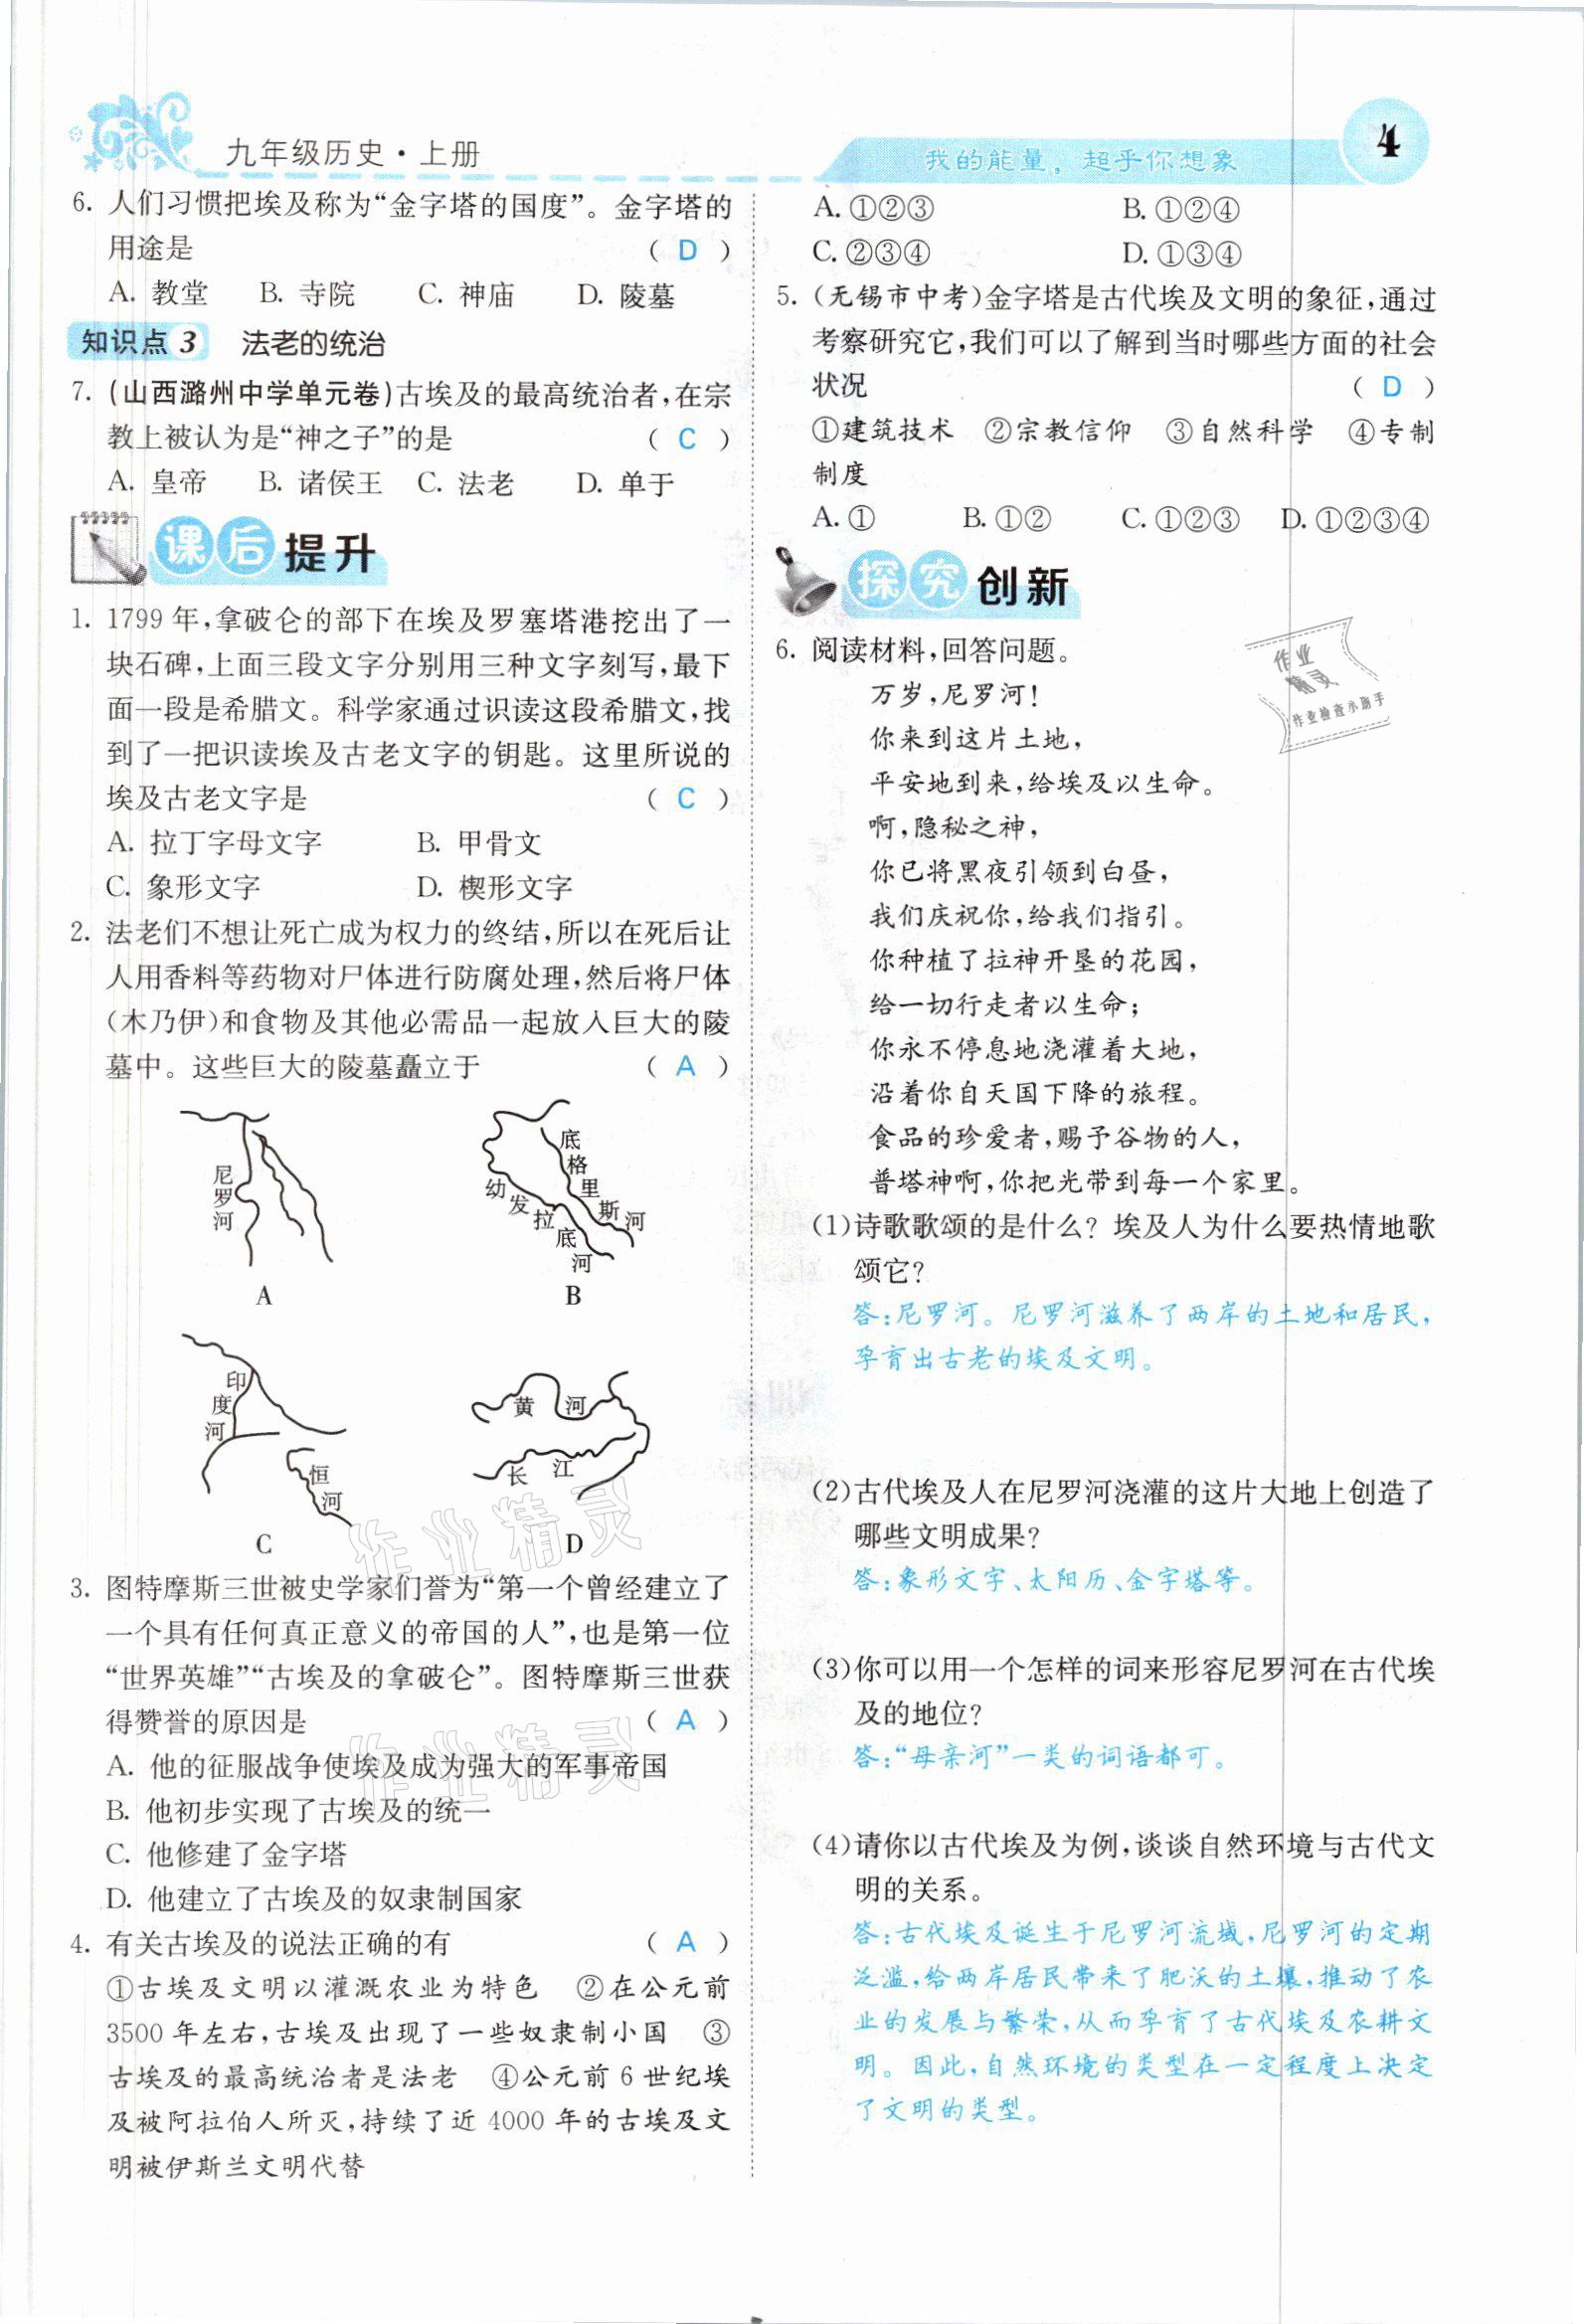 九年级历史·上册
我的能量，超乎你想象
4
6. 人们习惯把埃及称为“金字塔的国度”。金字塔的
用途是 ( D )
A. 教堂 B. 寺院 C. 神庙 D. 陵墓
知识点 3 法老的统治
7. (山西潞州中学单元卷)古埃及的最高统治者,在宗
教上被认为是“神之子”的是 ( C )
A. 皇帝 B. 诸侯王 C. 法老 D. 单于
课后提升
1. 1799 年,拿破仑的部下在埃及罗塞塔港挖出了一
块石碑,上面三段文字分别用三种文字刻写,最下
面一段是希腊文。科学家通过识读这段希腊文,找
到了一把识读埃及古老文字的钥匙。这里所说的
埃及古老文字是 ( C )
A. 拉丁字母文字 B. 甲骨文
C. 象形文字 D. 楔形文字
2. 法老们不想让死亡成为权力的终结,所以在死后让
人用香料等药物对尸体进行防腐处理,然后将尸体
(木乃伊)和食物及其他必需品一起放入巨大的陵
墓中。这些巨大的陵墓矗立于 ( A )
尼罗河
A
底格里斯河
幼发拉底河
B
印度河
恒河
C
黄河
长江
D
3. 图特摩斯三世被史学家们誉为“第一个曾经建立了
一个具有任何真正意义的帝国的人”,也是第一位
“世界英雄”“古埃及的拿破仑”。图特摩斯三世获
得赞誉的原因是 ( A )
A. 他的征服战争使埃及成为强大的军事帝国
B. 他初步实现了古埃及的统一
C. 他修建了金字塔
D. 他建立了古埃及的奴隶制国家
4. 有关古埃及的说法正确的有 ( A )
①古埃及文明以灌溉农业为特色 ②在公元前
3500 年左右,古埃及出现了一些奴隶制小国 ③
古埃及的最高统治者是法老 ④公元前 6 世纪埃
及被阿拉伯人所灭,持续了近 4000 年的古埃及文
明被伊斯兰文明代替
A. ①②③ B. ①②④
C. ②③④ D. ①③④
5. (无锡市中考)金字塔是古代埃及文明的象征,通过
考察研究它,我们可以了解到当时哪些方面的社会
状况 ( D )
①建筑技术 ②宗教信仰 ③自然科学 ④专制
制度
A. ① B. ①② C. ①②③ D. ①②③④
探究创新
6. 阅读材料,回答问题。
万岁,尼罗河!
你来到这片土地,
平安地到来,给埃及以生命。
啊,隐秘之神,
你已将黑夜引领到白昼,
我们庆祝你,给我们指引。
你种植了拉神开垦的花园,
给一切行走者以生命;
你永不停息地浇灌着大地,
沿着你自天国下降的旅程。
食品的珍爱者,赐予谷物的人,
普塔神啊,你把光带到每一个家里。
(1)诗歌歌颂的是什么? 埃及人为什么要热情地歌
颂它?
答:尼罗河。尼罗河滋养了两岸的土地和居民,
孕育出古老的埃及文明。
(2)古代埃及人在尼罗河浇灌的这片大地上创造了
哪些文明成果?
答:象形文字、太阳历、金字塔等。
(3)你可以用一个怎样的词来形容尼罗河在古代埃
及的地位?
答:“母亲河”一类的词语都可。
(4)请你以古代埃及为例,谈谈自然环境与古代文
明的关系。
答:古代埃及诞生于尼罗河流域,尼罗河的定期
泛滥,给两岸居民带来了肥沃的土壤,推动了农
业的发展与繁荣,从而孕育了古代埃及农耕文
明。因此,自然环境的类型在一定程度上决定
了文明的类型。
作业
精灵
作业检查小助手
作业精灵
作业精灵